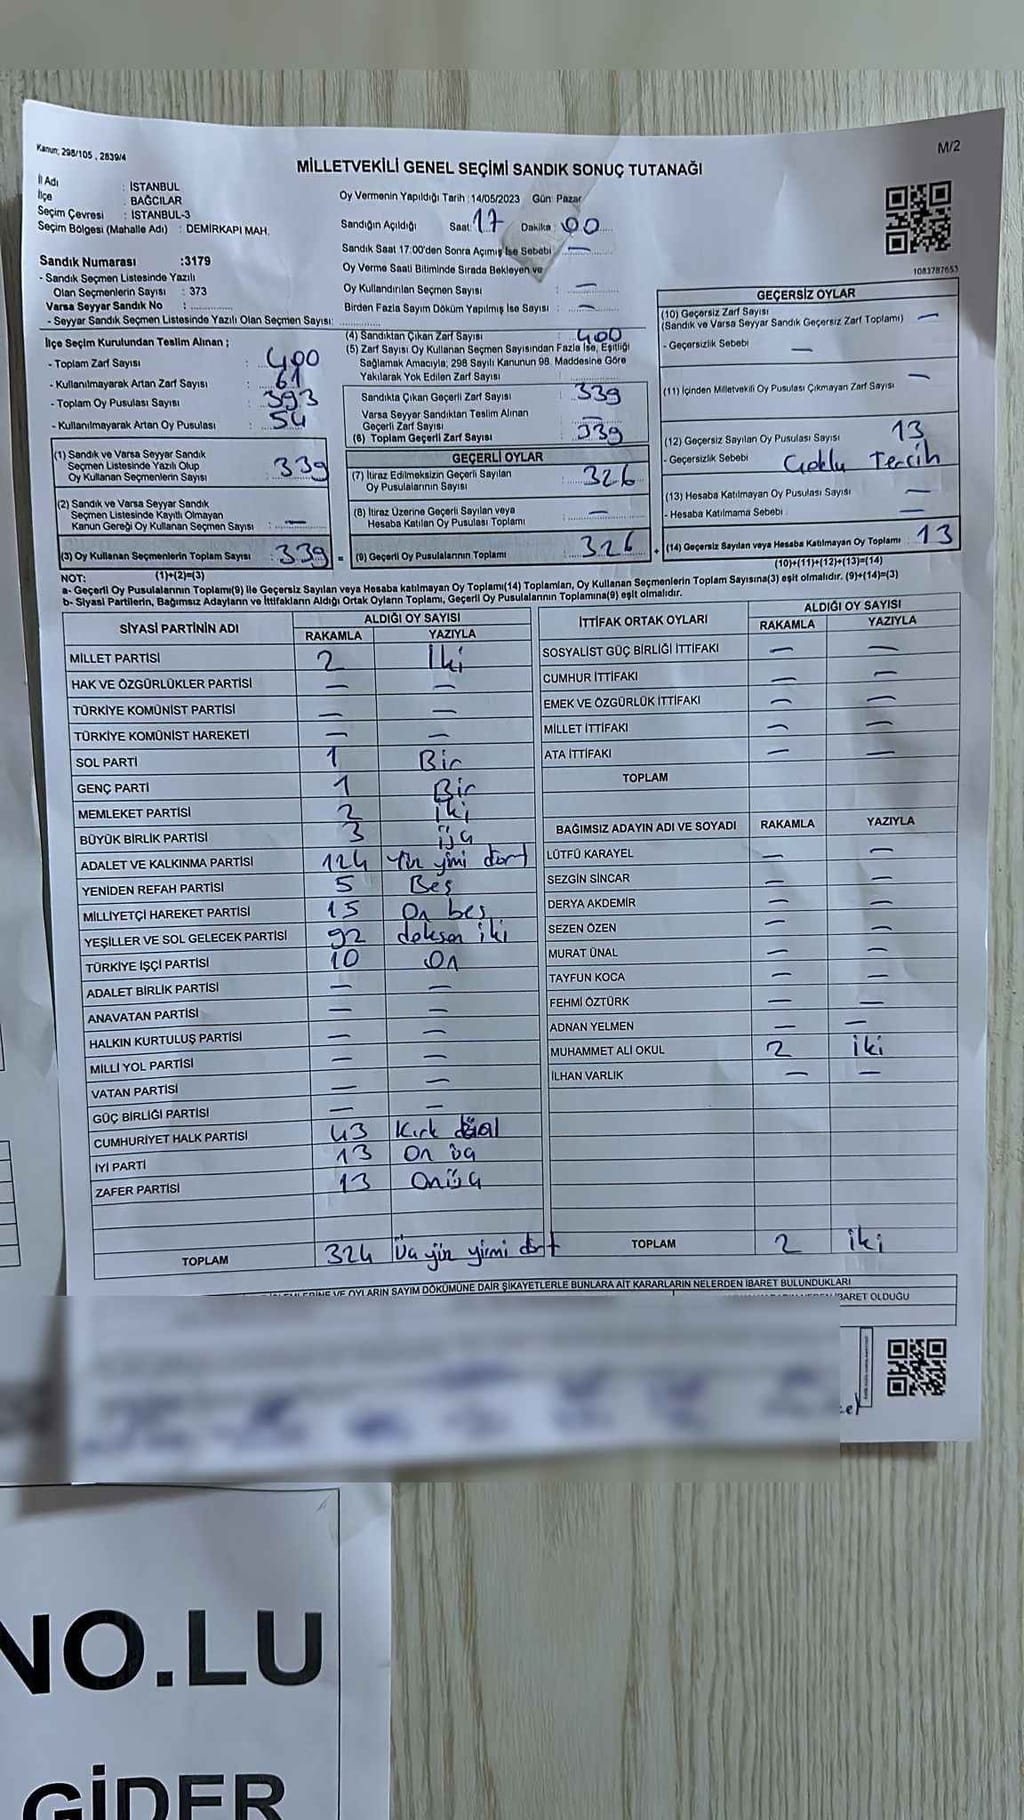 Kanun; 298/105 , 2839/4
M/2
MİLLETVEKİLİ GENEL SEÇİMİ SANDIK SONUÇ TUTANAĞI
İl Adı : İSTANBUL
İlçe : BAĞCILAR
Seçim Çevresi : İSTANBUL-3
Seçim Bölgesi (Mahalle Adı) : DEMİRKAPI MAH.
Sandık Numarası :3179
- Sandık Seçmen Listesinde Yazılı
Olan Seçmenlerin Sayısı : 373
Varsa Seyyar Sandık No :
- Seyyar Sandık Seçmen Listesinde Yazılı Olan Seçmen Sayısı:
Oy Vermenin Yapıldığı Tarih :14/05/2023 Gün: Pazar
Sandığın Açıldığı Saat: 17 Dakika: 00
Sandık Saat 17.00'den Sonra Açılmış İse Sebebi : —
Oy Verme Saati Bitiminde Sırada Bekleyen ve
Oy Kullandırılan Seçmen Sayısı : —
Birden Fazla Sayım Döküm Yapılmış İse Sayısı : —
1083787653
İlçe Seçim Kurulundan Teslim Alınan ;
- Toplam Zarf Sayısı : 400
- Kullanılmayarak Artan Zarf Sayısı : 61
- Toplam Oy Pusulası Sayısı : 393
- Kullanılmayarak Artan Oy Pusulası : 54
(1) Sandık ve Varsa Seyyar Sandık
Seçmen Listesinde Yazılı Olup
Oy Kullanan Seçmenlerin Sayısı : 339
(2) Sandık ve Varsa Seyyar Sandık
Seçmen Listesinde Kayıtlı Olmayan
Kanun Gereği Oy Kullanan Seçmen Sayısı : —
(3) Oy Kullanan Seçmenlerin Toplam Sayısı : 339 =
(1)+(2)=(3)
(4) Sandıktan Çıkan Zarf Sayısı : 400
(5) Zarf Sayısı Oy Kullanan Seçmen Sayısından Fazla İse, Eşitliği
Sağlamak Amacıyla; 298 Sayılı Kanunun 98. Maddesine Göre
Yakılarak Yok Edilen Zarf Sayısı
Sandıkta Çıkan Geçerli Zarf Sayısı : 339
Varsa Seyyar Sandıktan Teslim Alınan
Geçerli Zarf Sayısı : —
(6) Toplam Geçerli Zarf Sayısı : 339
GEÇERLİ OYLAR
(7) İtiraz Edilmeksizin Geçerli Sayılan
Oy Pusulalarının Sayısı : 326
(8) İtiraz Üzerine Geçerli Sayılan veya
Hesaba Katılan Oy Pusulası Toplamı : —
(9) Geçerli Oy Pusulalarının Toplamı : 326 +
GEÇERSİZ OYLAR
(10) Geçersiz Zarf Sayısı
(Sandık ve Varsa Seyyar Sandık Geçersiz Zarf Toplamı) : —
- Geçersizlik Sebebi : —
(11) İçinden Milletvekili Oy Pusulası Çıkmayan Zarf Sayısı : —
(12) Geçersiz Sayılan Oy Pusulası Sayısı : 13
- Geçersizlik Sebebi : Çoklu Tercih
(13) Hesaba Katılmayan Oy Pusulası Sayısı : —
- Hesaba Katılmama Sebebi : —
(14) Geçersiz Sayılan veya Hesaba Katılmayan Oy Toplamı : 13
(10)+(11)+(12)+(13)=(14)
NOT:
a- Geçerli Oy Pusulalarının Toplamı(9) ile Geçersiz Sayılan veya Hesaba katılmayan Oy Toplamı(14) Toplamları, Oy Kullanan Seçmenlerin Toplam Sayısına(3) eşit olmalıdır. (9)+(14)=(3)
b- Siyasi Partilerin, Bağımsız Adayların ve İttifakların Aldığı Ortak Oyların Toplamı, Geçerli Oy Pusulalarının Toplamına(9) eşit olmalıdır.
SİYASİ PARTİNİN ADI ALDIĞI OY SAYISI
RAKAMLA YAZIYLA
MİLLET PARTİSİ 2 İki
HAK VE ÖZGÜRLÜKLER PARTİSİ — —
TÜRKİYE KOMÜNİST PARTİSİ — —
TÜRKİYE KOMÜNİST HAREKETİ — —
SOL PARTİ 1 Bir
GENÇ PARTİ 1 Bir
MEMLEKET PARTİSİ 2 iki
BÜYÜK BİRLİK PARTİSİ 3 üç
ADALET VE KALKINMA PARTİSİ 124 Yüz yimi dört
YENİDEN REFAH PARTİSİ 5 Beş
MİLLİYETÇİ HAREKET PARTİSİ 15 On beş
YEŞİLLER VE SOL GELECEK PARTİSİ 92 doksan iki
TÜRKİYE İŞÇİ PARTİSİ 10 On
ADALET BİRLİK PARTİSİ — —
ANAVATAN PARTİSİ — —
HALKIN KURTULUŞ PARTİSİ — —
MİLLİ YOL PARTİSİ — —
VATAN PARTİSİ — —
GÜÇ BİRLİĞİ PARTİSİ — —
CUMHURİYET HALK PARTİSİ 43 Kırk
İYİ PARTİ 13 On üç
ZAFER PARTİSİ 13 Onüç
TOPLAM 324 Üç yüz yirmi dört
İTTİFAK ORTAK OYLARI ALDIĞI OY SAYISI
RAKAMLA YAZIYLA
SOSYALİST GÜÇ BİRLİĞİ İTTİFAKI — —
CUMHUR İTTİFAKI — —
EMEK VE ÖZGÜRLÜK İTTİFAKI — —
MİLLET İTTİFAKI — —
ATA İTTİFAKI — —
TOPLAM
BAĞIMSIZ ADAYIN ADI VE SOYADI RAKAMLA YAZIYLA
LÜTFÜ KARAYEL — —
SEZGİN SİNCAR — —
DERYA AKDEMİR — —
SEZEN ÖZEN — —
MURAT ÜNAL — —
TAYFUN KOCA — —
FEHMİ ÖZTÜRK — —
ADNAN YELMEN — —
MUHAMMET ALİ OKUL 2 iki
İLHAN VARLIK — —
TOPLAM 2 iki
VE OYLARIN SAYIM DÖKÜMÜNE DAİR ŞİKAYETLERLE BUNLARA AİT KARARLARIN NELERDEN İBARET BULUNDUKLARI
İBARET OLDUĞU
NO.LU
GİDER